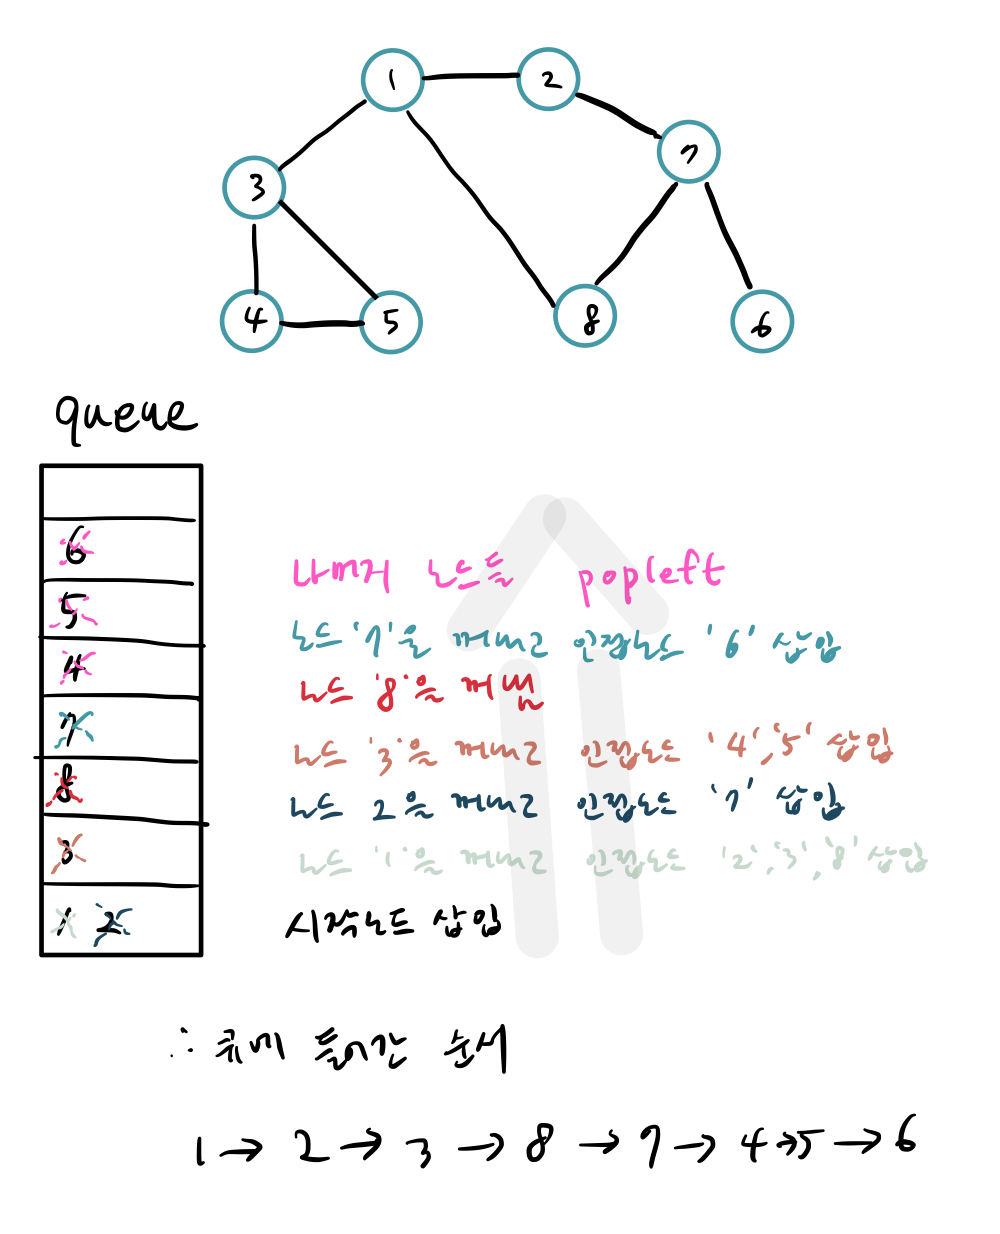 1 2
7
3
4 5 8 6
queue
6
5
4
7
8
3
1 2
나머지 노드들 popleft
노드 '7'을 꺼내고 인접노드 '6' 삽입
노드 '8'을 꺼냄
노드 '3'을 꺼내고 인접노드 '4','5' 삽입
노드 2을 꺼내고 인접노드 '7' 삽입
노드 '1'을 꺼내고 인접노드 '2','3','8' 삽입
시작노드 삽입
∴ 큐에 들어간 순서
1 → 2 → 3 → 8 → 7 → 4 → 5 → 6